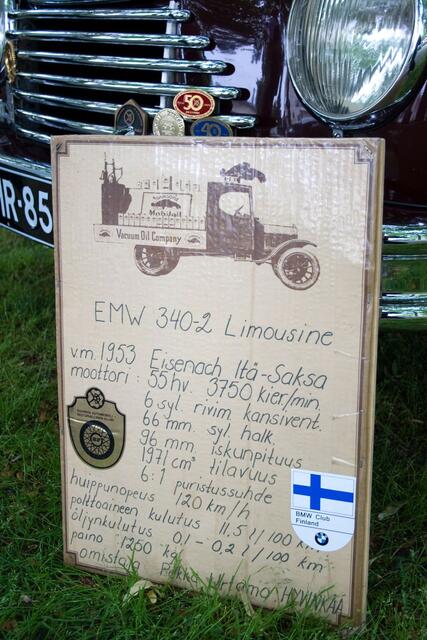 50
50
IR-85
Mobiloil
Vacuum Oil Company
EMW 340-2 Limousine
v.m. 1953 Eisenach Itä-Saksa
moottori: 55 hv. 3750 kier/min.
6 syl. rivim. kansivent.
66 mm. syl. halk.
96 mm. iskunpituus
1971 cm³ tilavuus
6:1 puristussuhde
huippunopeus 120 km/h
polttoaineen kulutus 11,5 l/100 km.
öljynkulutus 0,1 - 0,2 l/100 km
paino 1260 kg
omistaja Pekka HYVINKÄÄ
BMW Club
Finland
BMW